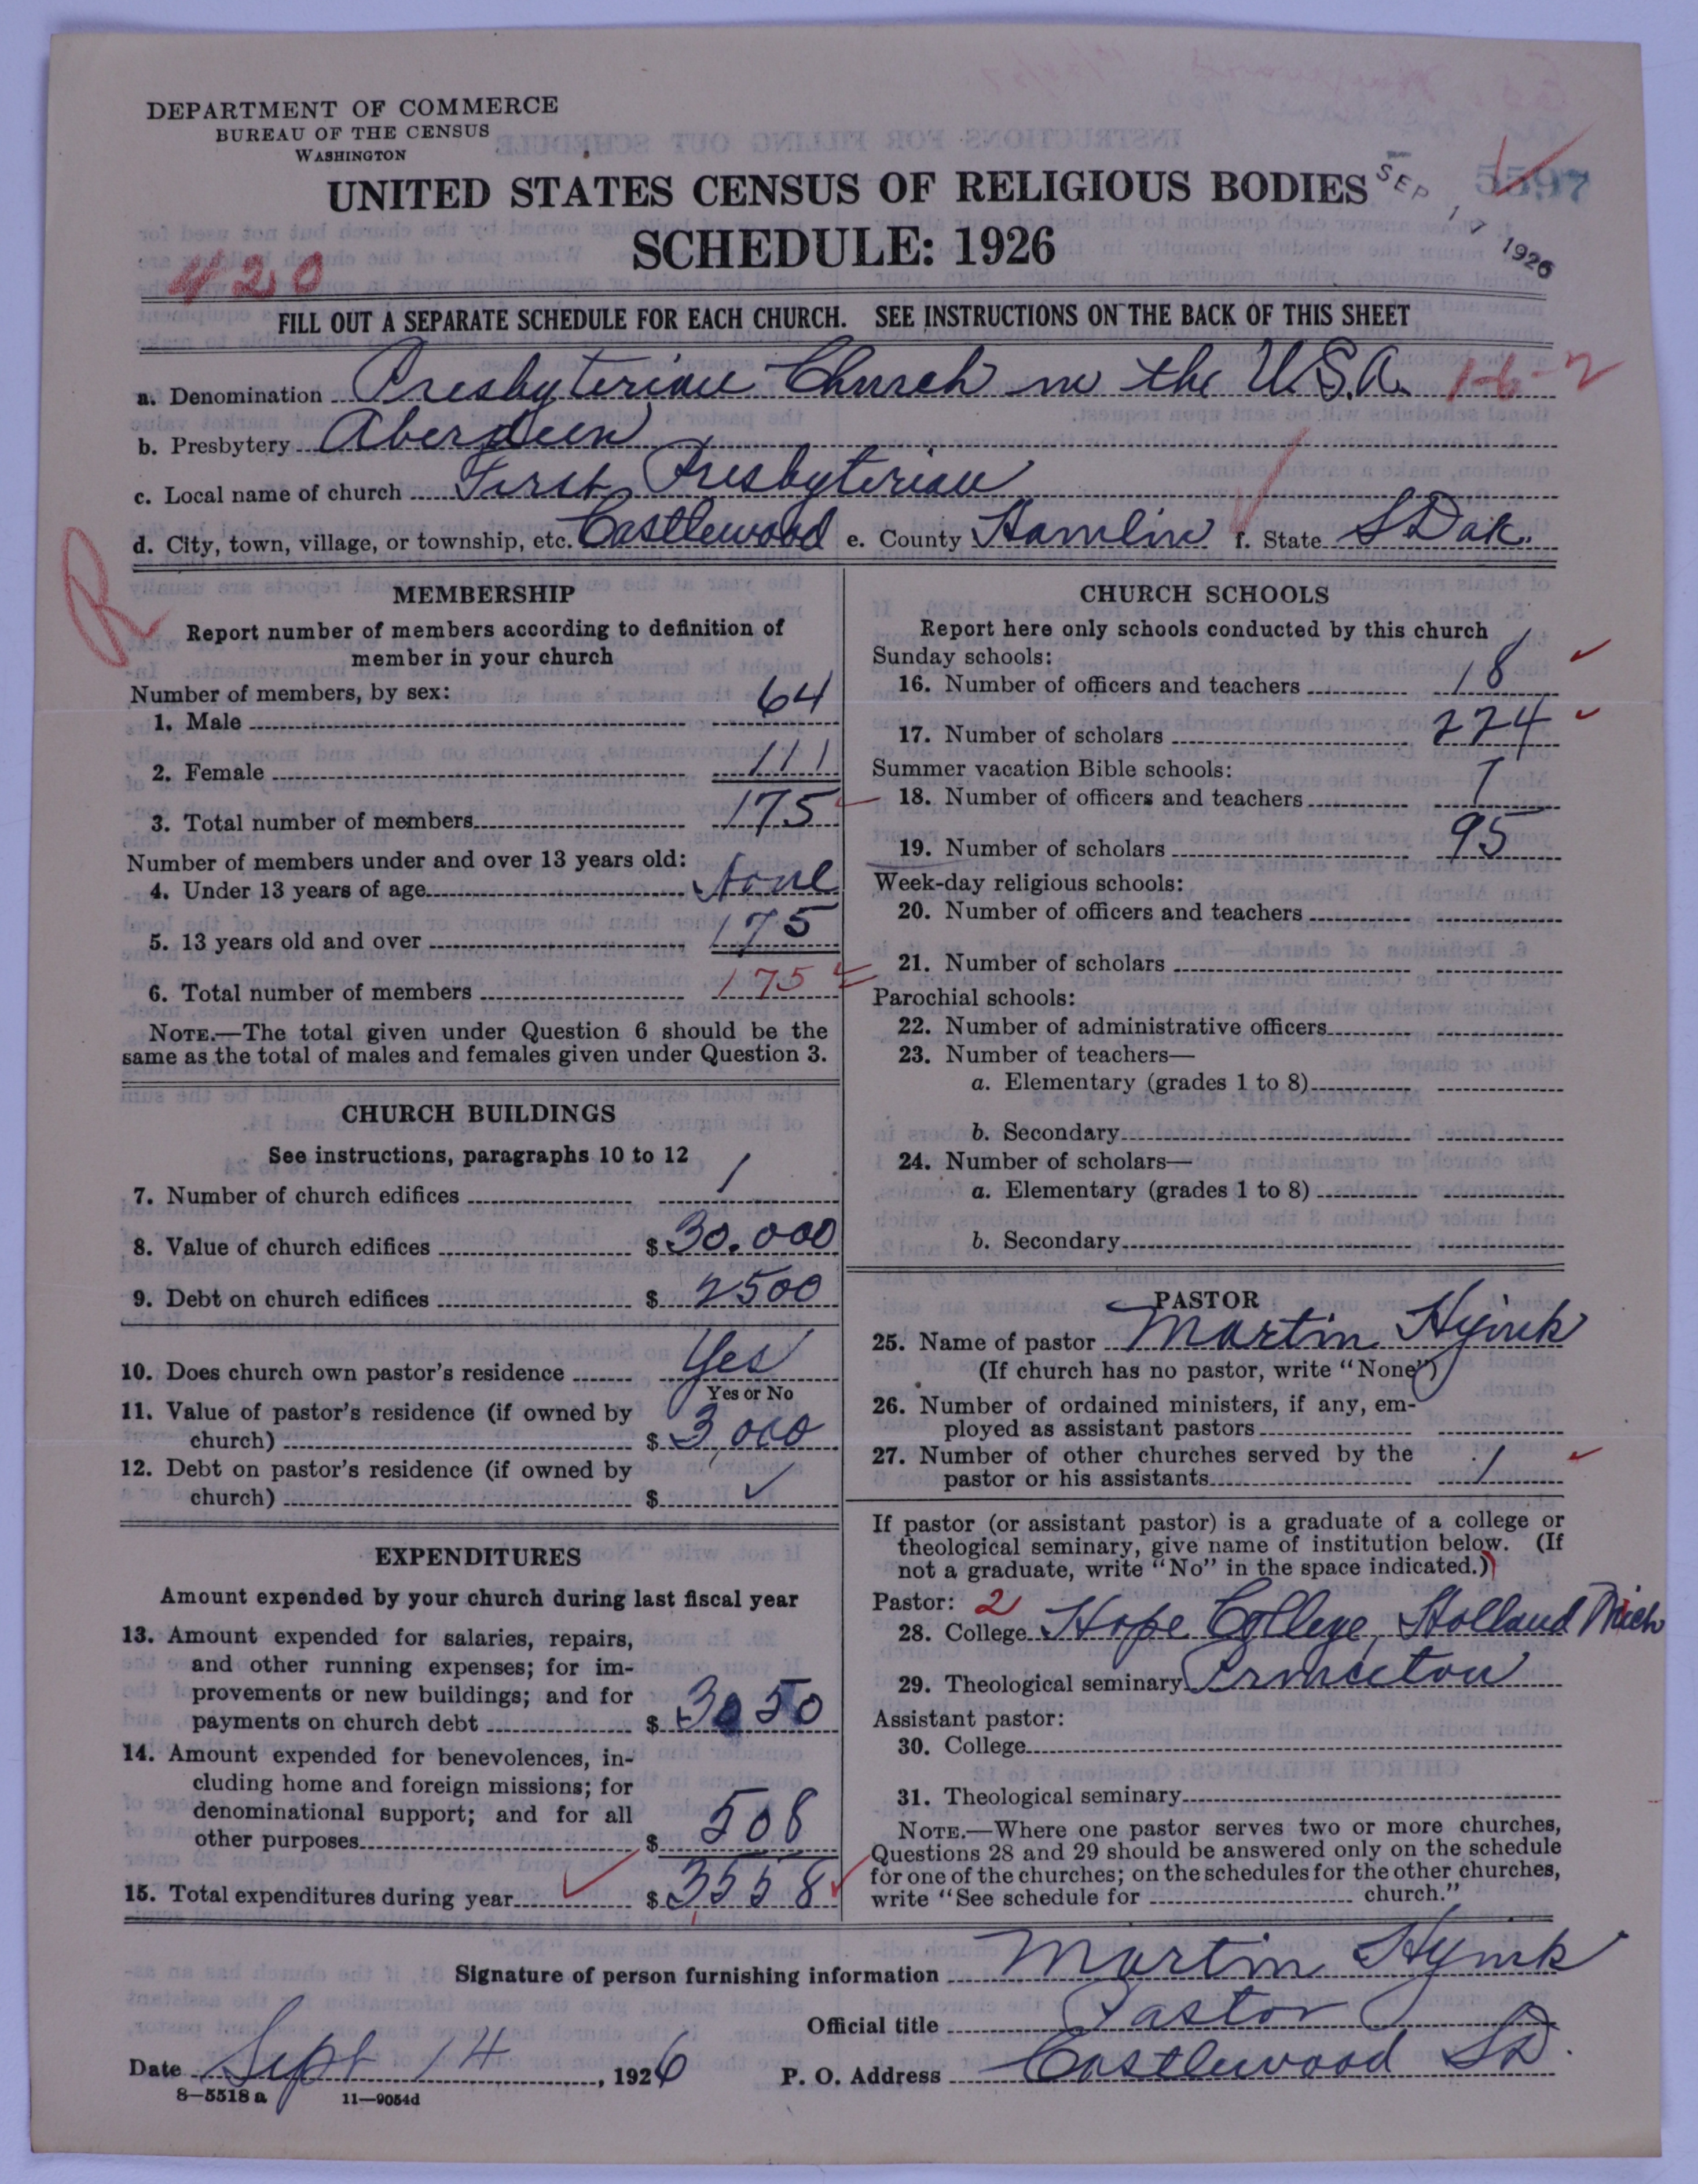 DEPARTMENT OF COMMERCE
BUREAU OF THE CENSUS
WASHINGTON
UNITED STATES CENSUS OF RELIGIOUS BODIES
SCHEDULE: 1926
SEP 17 1926
5597
420
FILL OUT A SEPARATE SCHEDULE FOR EACH CHURCH. SEE INSTRUCTIONS ON THE BACK OF THIS SHEET
a. Denomination Presbyterian Church in the U.S.A. 1-6-2
b. Presbytery Aberdeen
c. Local name of church First Presbyterian
d. City, town, village, or township, etc. Castlewood e. County Hamlin f. State S Dak.
R
MEMBERSHIP
Report number of members according to definition of
member in your church
Number of members, by sex:
1. Male 64
2. Female 111
3. Total number of members 175
Number of members under and over 13 years old:
4. Under 13 years of age None
5. 13 years old and over 175
6. Total number of members 175
NOTE.—The total given under Question 6 should be the
same as the total of males and females given under Question 3.
CHURCH BUILDINGS
See instructions, paragraphs 10 to 12
7. Number of church edifices 1
8. Value of church edifices $ 30.000
9. Debt on church edifices $ 2500
10. Does church own pastor's residence Yes
Yes or No
11. Value of pastor's residence (if owned by
church) $ 3,000
12. Debt on pastor's residence (if owned by
church) $ ✓
EXPENDITURES
Amount expended by your church during last fiscal year
13. Amount expended for salaries, repairs,
and other running expenses; for im-
provements or new buildings; and for
payments on church debt $ 3050
14. Amount expended for benevolences, in-
cluding home and foreign missions; for
denominational support; and for all
other purposes $ 508
15. Total expenditures during year $ 3558
CHURCH SCHOOLS
Report here only schools conducted by this church
Sunday schools:
16. Number of officers and teachers 18
17. Number of scholars 224
Summer vacation Bible schools:
18. Number of officers and teachers 7
19. Number of scholars 95
Week-day religious schools:
20. Number of officers and teachers
21. Number of scholars
Parochial schools:
22. Number of administrative officers
23. Number of teachers—
a. Elementary (grades 1 to 8)
b. Secondary
24. Number of scholars—
a. Elementary (grades 1 to 8)
b. Secondary
PASTOR
25. Name of pastor Martin Hyink
(If church has no pastor, write "None")
26. Number of ordained ministers, if any, em-
ployed as assistant pastors
27. Number of other churches served by the
pastor or his assistants 1
If pastor (or assistant pastor) is a graduate of a college or
theological seminary, give name of institution below. (If
not a graduate, write "No" in the space indicated.)
Pastor: 2
28. College Hope College, Holland Mich
29. Theological seminary Princeton
Assistant pastor:
30. College
31. Theological seminary
NOTE.—Where one pastor serves two or more churches,
Questions 28 and 29 should be answered only on the schedule
for one of the churches; on the schedules for the other churches,
write "See schedule for church."
Signature of person furnishing information Martin Hyink
Official title Pastor
Date Sept 14, 1926 P. O. Address Castlewood SD.
8—5518 a 11—9054d